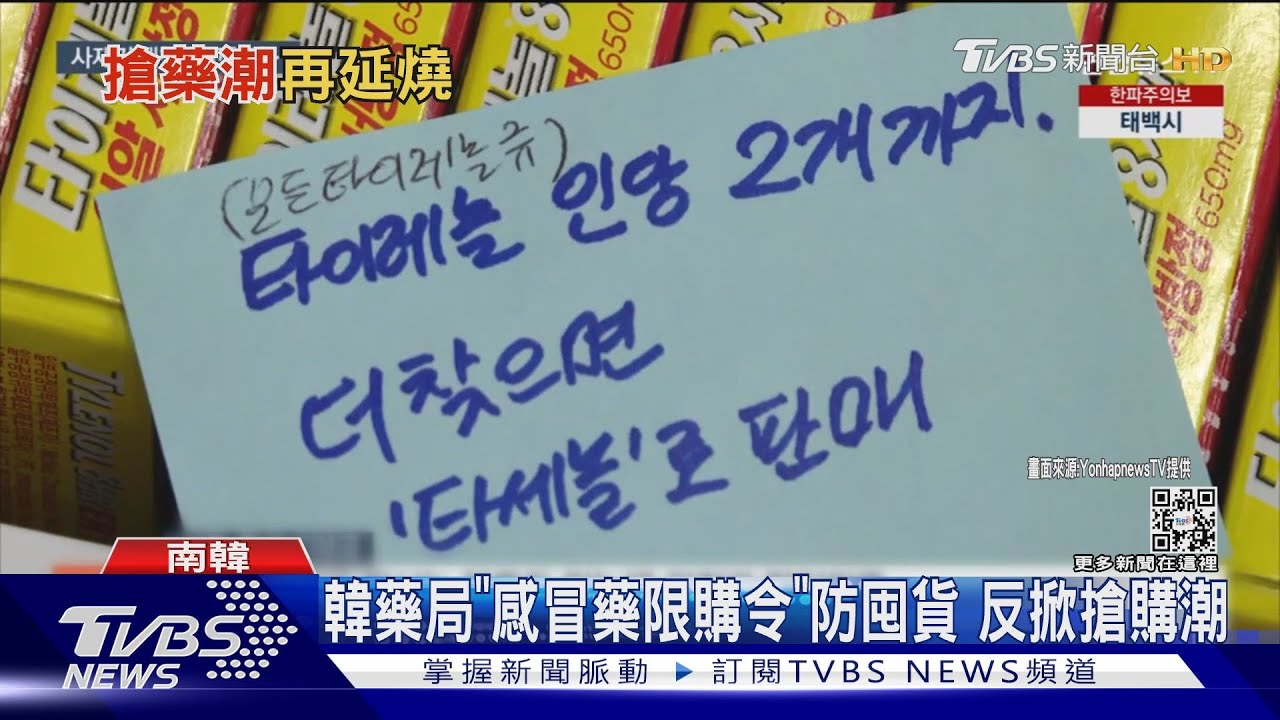 사재
搶藥潮再延燒
TVBS新聞台HD
한파주의보
태백시
타이레놀
650mg
650mg
(모든타이레놀류)
타이레놀 인당 2개까지.
더 찾으면
'타세놀'로 판매
TYLENOL
畫面來源:YonhapnewsTV提供
更多新聞在這裡
南韓
TVBS
NEWS
韓藥局"感冒藥限購令"防囤貨 反掀搶購潮
掌握新聞脈動 ▶ 訂閱TVBS NEWS頻道